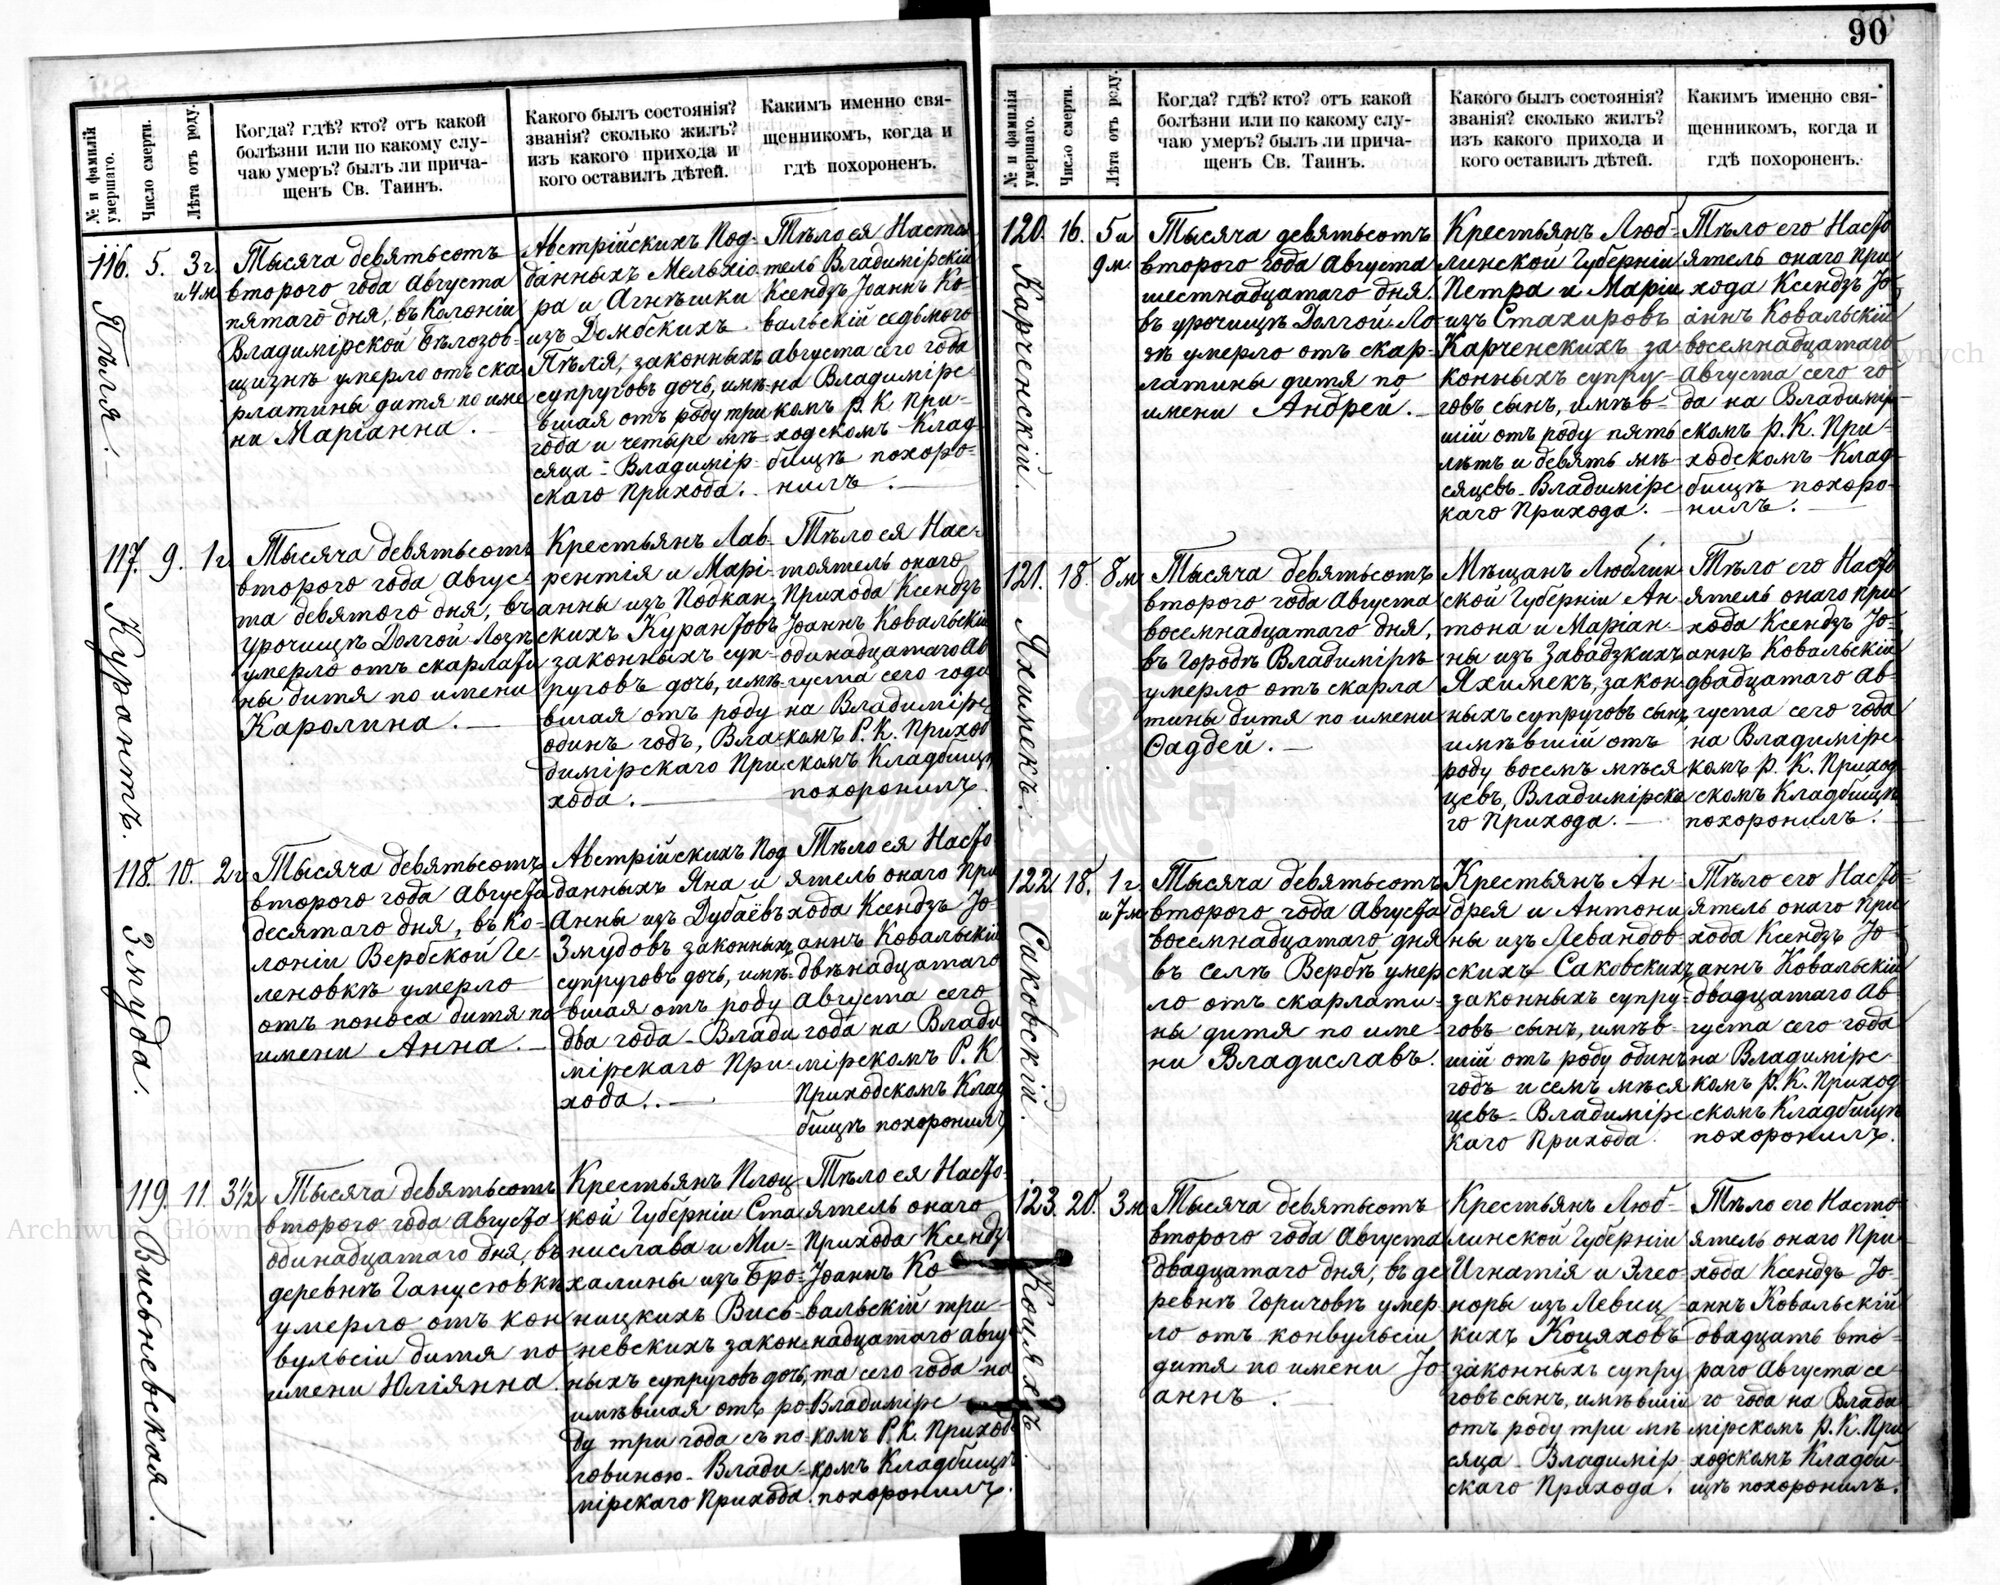 90
№ и фамилій умершаго.
Число смерти.
Лѣта отъ роду.
Когда? гдѣ? кто? отъ какой
болѣзни или по какому слу-
чаю умеръ? былъ ли прича-
щенъ Св. Таинъ.
Какого былъ состоянія?
званія? сколько жилъ?
изъ какого прихода и
кого оставилъ дѣтей.
Какимъ именно свя-
щенникомъ, когда и
гдѣ похороненъ.
116.
Пѣля.
5.
3 г.
и 4 м
Тысяча девятьсотъ
второго года Августа
пятаго дня, въ Колоніи
Владимірской Бѣлозов-
щизнѣ умерло отъ ска
рлатины дитя по име
ни Маріанна.
Австрійскихъ Под-
данныхъ Мельхіо
ра и Агнѣшки
изъ Домбскихъ
Пѣля, законныхъ
супруговъ дочь, имѣ-
вшая отъ роду три
года и четыре мѣ-
сяца - Владимір-
скаго Прихода.
Тѣло ея Настоя
тель Владимірскій
Ксендзъ Іоаннъ Ко-
вальскій седьмого
августа сего года
на Владимірс
комъ р. К. При-
ходскомъ Клад-
бищѣ похоро-
нилъ.
117.
Курантъ.
9.
1 г.
Тысяча девятьсотъ
второго года Авгус-
та девятого дня, въ
урочищѣ Долгой Лозѣ
умерло отъ скарлати
ны дитя по имени
Каролина.
Крестьянъ Лав-
рентія и Марі-
анны изъ Подкан-
скихъ Курантовъ
законныхъ суп-
руговъ дочь, имѣ-
вшая отъ роду
одинъ годъ, Вла-
димірскаго При-
хода.
Тѣло ея Нас-
тоятель онаго
Прихода Ксендзъ
Іоаннъ Ковальскій
одинадцатаго Ав
густа сего года
на Владимірс
комъ Р. К. Приход
скомъ Кладбищѣ
похоронилъ.
118.
Змуда.
10.
2 г.
Тысяча девятьсотъ
второго года Августа
десятаго дня, въ Ко-
лоніи Вербской Ге-
леновкѣ умерло
отъ поноса дитя по
имени Анна.
Австрійскихъ Под
данныхъ Яна и
Анны изъ Дубаёвъ
Змудовъ законныхъ
супруговъ дочь, имѣ-
вшая отъ роду
два года - Влади
мірскаго При-
хода.
Тѣло ея Насто
ятель онаго При
хода Ксендзъ Іо-
аннъ Ковальскій
двѣнадцатаго
Августа сего
года на Влади
мірскомъ Р. К
Приходскомъ Клад
бищѣ похоронилъ
119.
Висьневская.
11.
3½
Тысяча девятьсотъ
второго года Августа
одинадцатаго дня, въ
деревнѣ Ганусювки
умерло отъ кон
вульсіи дитя по
имени Юліянна.
Крестьянъ Плоц
кой Губерніи Ста
нислава и Ми-
халины изъ Бро-
ницкихъ Вись-
невскихъ закон
ныхъ супруговъ дочь,
имѣвшая отъ ро-
ду три года съ по-
ловиною - Влади-
мірскаго Прихода.
Тѣло ея Насто-
ятель онаго
Прихода Ксендзъ
Іоаннъ Ко-
вальскій три-
надцатаго авгу
та сего года на
Владимірс
комъ Р. К. Приход
комъ Кладбищѣ
похоронилъ.
№ и фамилія умершаго.
Число смерти.
Лѣта отъ роду.
Когда? гдѣ? кто? отъ какой
болѣзни или по какому слу-
чаю умеръ? былъ ли прича-
щенъ Св. Таинъ.
Какого былъ состоянія?
званія? сколько жилъ?
изъ какого прихода и
кого оставилъ дѣтей.
Какимъ именно свя-
щенникомъ, когда и
гдѣ похороненъ.
120.
Карченскій.
16.
5 и
9 м.
Тысяча девятьсотъ
второго года Августа
шестнадцатаго дня.
въ урочищѣ Долгой Ло
зѣ умерло отъ скар-
латины дитя по
имени Андрей.
Крестьянъ Люб-
линской Губерніи
Петра и Маріи
изъ Стахировъ
Карченскихъ за-
конныхъ супру-
говъ сынъ, имѣв-
шій отъ роду пять
лѣтъ и девять мѣ-
сяцевъ - Владимірс
каго Прихода.
Тѣло его Насто
ятель онаго При
хода Ксендзъ Іо-
аннъ Ковальскій
восемнадцатаго
Августа сего го-
да на Владимір-
скомъ р. К. При-
ходскомъ Клад-
бищѣ похоро-
нилъ.
121.
Яхимекъ.
18.
8 м
Тысяча девятьсотъ
второго года Августа
восемнадцатаго дня,
въ Городѣ Владимірѣ
умерло отъ скарла
тины дитя по имени
Ѳаддей.
Мѣщанъ Люблин
ской Губерніи Ан
тона и Маріан-
ны изъ Завадзкихъ
Яхимекъ, закон
ныхъ супруговъ сынъ,
имѣвшій отъ
роду восемь мѣся
цевъ, Владимірска
го Прихода.
Тѣло его Насто
ятель онаго При
хода Ксендзъ Іо-
аннъ Ковальскій
двадцатаго Ав-
густа сего года
на Владимірс
комъ р. К. Приход
скомъ Кладбищѣ
похоронилъ.
122.
Саковскій.
18.
1 г.
и 7 м
Тысяча девятьсотъ
второго года Августа
восемнадцатаго дня
въ селѣ Вербѣ умер
ло отъ скарлати-
ны дитя по име
ни Владиславъ.
Крестьянъ Ан-
дрея и Антони
ны изъ Левандов-
скихъ Саковскихъ
законныхъ супру-
говъ сынъ, имѣв-
шій отъ роду одинъ
годъ и семь мѣся
цевъ - Владимірс
каго Прихода
Тѣло его Насто-
ятель онаго При
хода Ксендзъ Іо-
аннъ Ковальскій
двадцатаго Ав
густа сего года
на Владимірс-
комъ р. К. Приход
скомъ Кладбищѣ
похоронилъ.
123.
Коцяхъ
20.
3 м
Тысяча девятьсотъ
второго года Августа
двадцатаго дня, въ де
ревнѣ Горичовѣ умер
ло отъ конвульсіи
дитя по имени Іо
аннъ.
Крестьянъ Люб-
линской Губерніи
Игнатія и Элео
норы изъ Левиц-
кихъ Коцяховъ
законныхъ супру
говъ сынъ, имѣвшій
отъ роду три мѣ
сяца - Владимір-
скаго Прихода.
Тѣло его Насто
ятель онаго При-
хода Ксендзъ Іо-
аннъ Ковальскій
двадцать вто-
раго Августа се-
го года на Влади
мірскомъ р. К. При
ходскомъ Кладби-
щѣ похоронилъ.